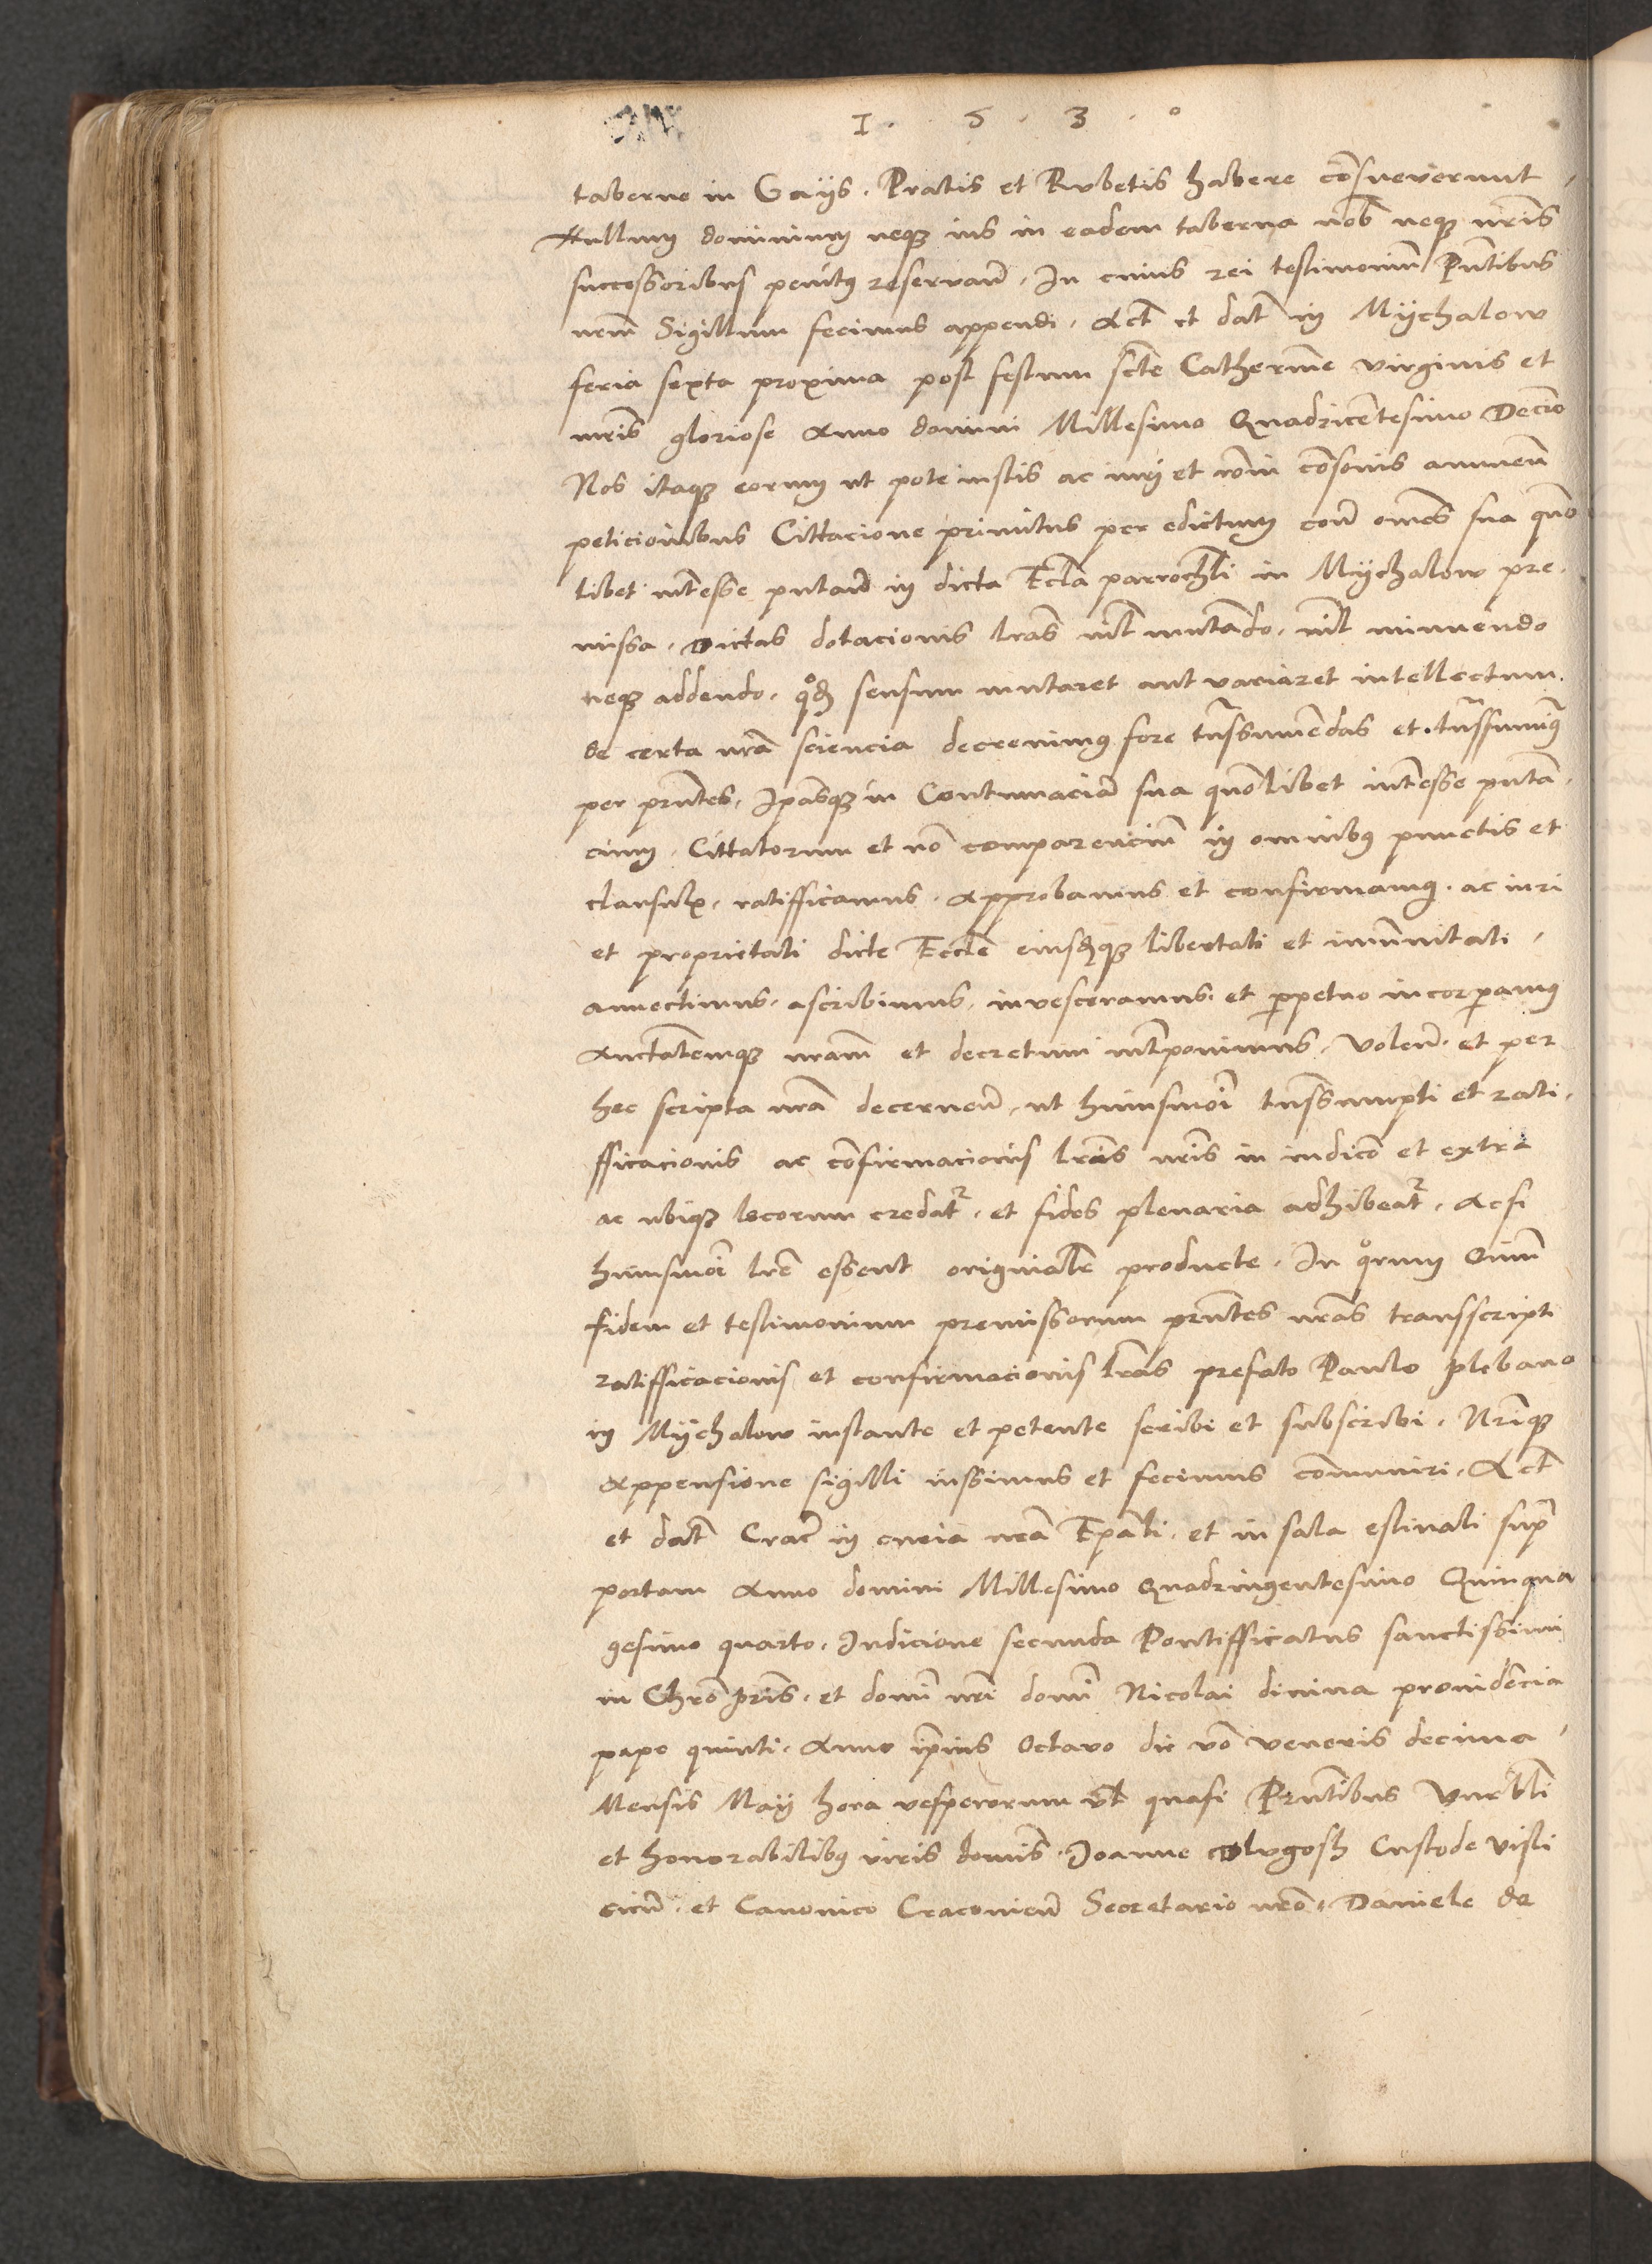 1 . 5 . 3 . 0
taberne in Gaÿs . Pratis et Rubetis habere cōsueverunt ,
Nullum dominium neqꝫ ius in eadem taberna nob̄ neqꝫ nr̄is
successoribus penitꝰ reservan̄ . In cuius rei testimoniū Pn̄tibus
nrm̄ Sigillum fecimus appendi . Act̄ et dat̄ in Mÿchalow
feria sexta proxima post festum sct̄e Catherine virginis et
mr̄is gloriose Anno domini Millesimo Quadricētesimo Decīo
Nos itaqꝫ eorum ut pote iustis ac iuri et rōni cōsonis annuen̄
peticionibus Cittacione primitus per edictum cont̄ om̄es sua quō
libet int̄esse putan̄ in dicta Eccl̄a parrochl̄i in Mÿchalow pre ,
missa . Dictas dotacionis lr̄as nil̄ mutādo . nil̄ minuendo
neqꝫ addendo . qd̄ sensum mutaret aut variaret intellectum .
de certa nr̄a sciencia decrevimꝰ fore tn̄ssumēdas et . tn̄ssumimꝰ
per pn̄tes , Ip̄asqꝫ in Contumaciā sua quōlibet int̄esse putā ,
cium . Cittatorum et nō comparenciū in omnibꝰ punctis et
clausulꝫ . ratifficamus . Approbamus et confirmamꝰ . ac iuri
et proprietati dicte Eccl̄e eiusdemqꝫ libertati et imūnitati ,
annectimus . ascribimus , invisceramus . et ꝑpetuo incorꝑamꝰ
Auctt̄atemqꝫ nram̄ et decretum int̄ponimus . Volen̄ . et per
hec scripta nr̄a decernen̄ . ut huiusmōi tn̄ssumpti et rati ,
fficacionis ac cōfirmacionis lr̄is nr̄is in iudicio et extra
ac ubiqꝫ locorum credat̄ . et fides plenaria adhibeat̄ . Acsi
huiusmōi lr̄e essent originalr̄ producte . In quorum Oīm
fidem et testimonium premissorum pn̄tes nr̄as transscripti
ratifficacionis et confirmacionis lr̄as prefato Paulo plebano
in Mÿchalow instante et petente scribi et subscribi . Nr̄iqꝫ
Appensione sigilli iussimus et fecimus communiri . Act̄
et dat̄ Crac̄ in curia nr̄a Ep̄ali . et in sala estivali supra
portam Anno domini Millesimo Quadringentesimo Quinqua
gesimo quarto . Indicione secunda Pontifficatus sanctissimi
in Chrō p̄ris . et domī nr̄i domī Nicolai divina providēcia
pape quinti . Anno ip̄ius Octavo die vō veneris decima ,
Mensis Maÿ hora vesperorum vl̄ quasi Pn̄tibus Vnrbl̄i
et honorabilibꝰ viris domīs . Joanne Dlugosh Custode Visli
cien̄ . et Canonico Cracovien̄ Secretario nr̄o . Daniele de